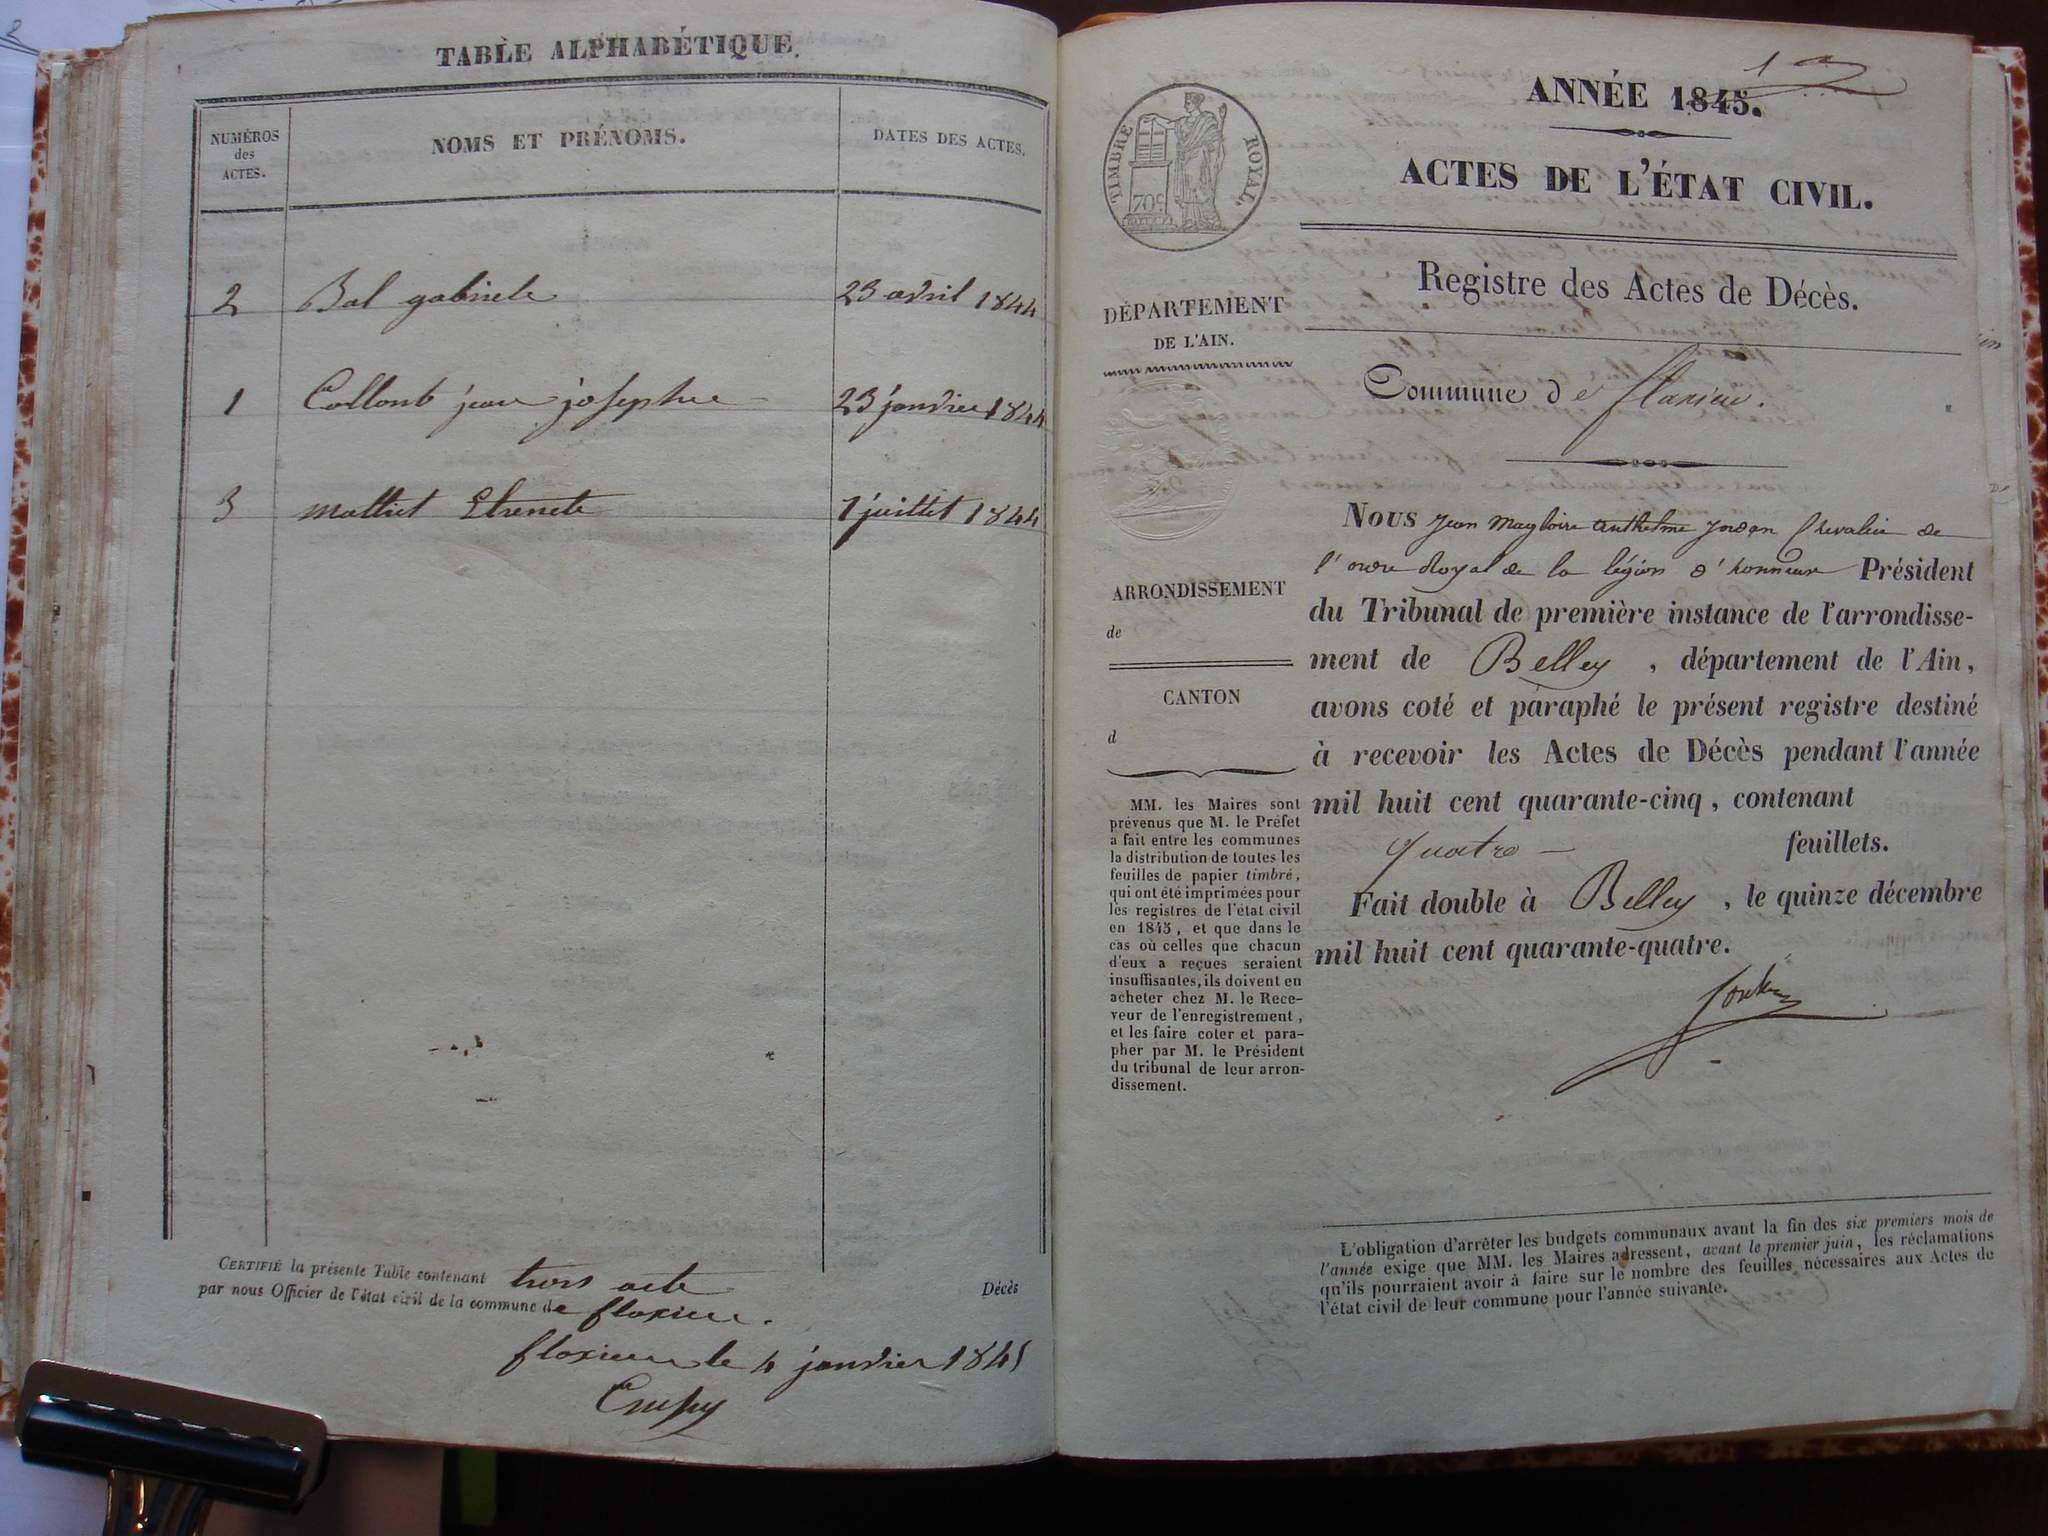 TABLE ALPHABÉTIQUE.
NUMÉROS
des
ACTES.
NOMS ET PRÉNOMS.
DATES DES ACTES.
2 Bal gabriele 23 avril 1844
1 Collomb jean josephe 23 janvier 1844
3 1 juillet 1844
CERTIFIÉ la présente Table contenant trois acte Décès
par nous Officier de l'état civil de la commune de flaxieu.
flaxieu le 4 janvier 1845
Crussy
ANNÉE 1845.
ACTES DE L'ÉTAT CIVIL.
TIMBRE ROYAL.
70c
Registre des Actes de Décès.
DÉPARTEMENT
DE L'AIN.
Commune de flaxieu.
ARRONDISSEMENT
de
CANTON
d
MM. les Maires sont
prévenus que M. le Préfet
a fait entre les communes
la distribution de toutes les
feuilles de papier timbré,
qui ont été imprimées pour
les registres de l'état civil
en 1845, et que dans le
cas où celles que chacun
d'eux a reçues seraient
insuffisantes, ils doivent en
acheter chez M. le Rece-
veur de l'enregistrement,
et les faire coter et para-
pher par M. le Président
du tribunal de leur arron-
dissement.
Nous Jean Magloire anthelme Jordan Chevalier de
l'ordre Royal de la légion d'honneur Président
du Tribunal de première instance de l'arrondisse-
ment de Belley, département de l'Ain,
avons coté et paraphé le présent registre destiné
à recevoir les Actes de Décès pendant l'année
mil huit cent quarante-cinq, contenant
quatre — feuillets.
Fait double à Belley, le quinze décembre
mil huit cent quarante-quatre.
Jordan
L'obligation d'arrêter les budgets communaux avant la fin des six premiers mois de
l'année exige que MM. les Maires adressent, avant le premier juin, les réclamations
qu'ils pourraient avoir à faire sur le nombre des feuilles nécessaires aux Actes de
l'état civil de leur commune pour l'année suivante.